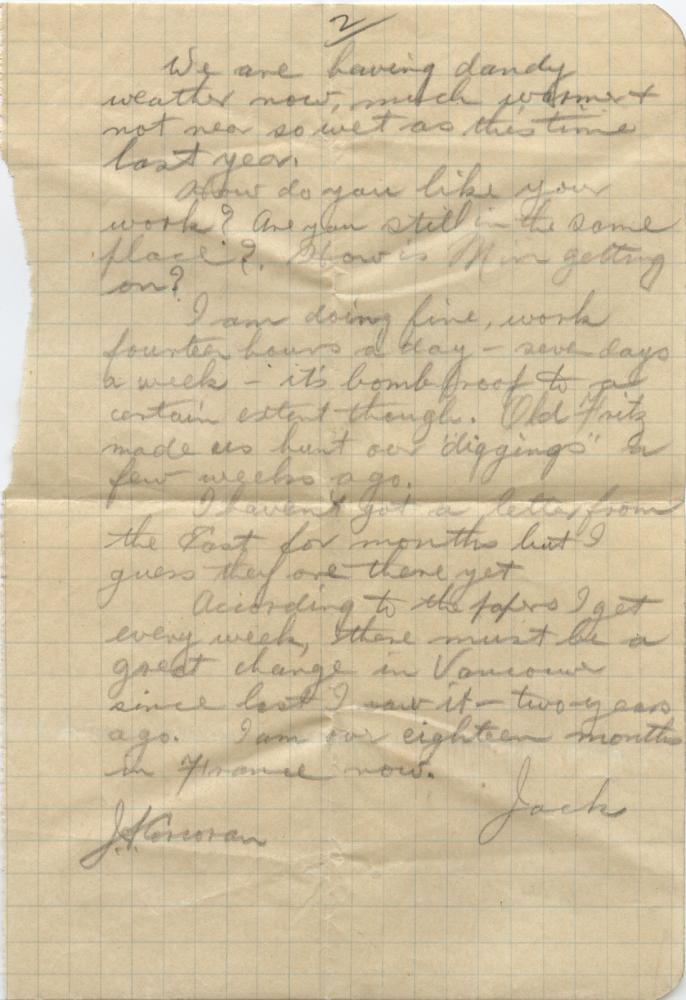 2
We are having dandy
weather now, much warmer +
not near so wet as this time
last year.
How do you like your
work? Are you still in the same
place?. How is Min getting
on?
I am doing fine, work
fourteen hours a day - seven days
a week - it's bombproof to a
certain extent though. Old Fritz
made us hunt our "diggings" a
few weeks ago.
I haven't got a letter from
the East for months but I
guess they are there yet
According to the papers I get
every week, there must be a
great change in Vancouver
since last I saw it - two years
ago. I am over eighteen months
in France now.
Jack
Corcoran